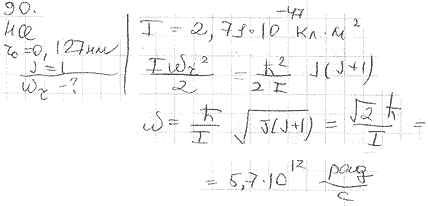 90.
HCl
r₀=0,127 нм
J=1
ωᵣ -?
I = 2,71·10⁻⁴⁷ кг·м²
Iωᵣ²/2 = ħ²/2I J(J+1)
ω = ħ/I √J(J+1) = √2 ħ/I =
= 5,7·10¹² рад/с